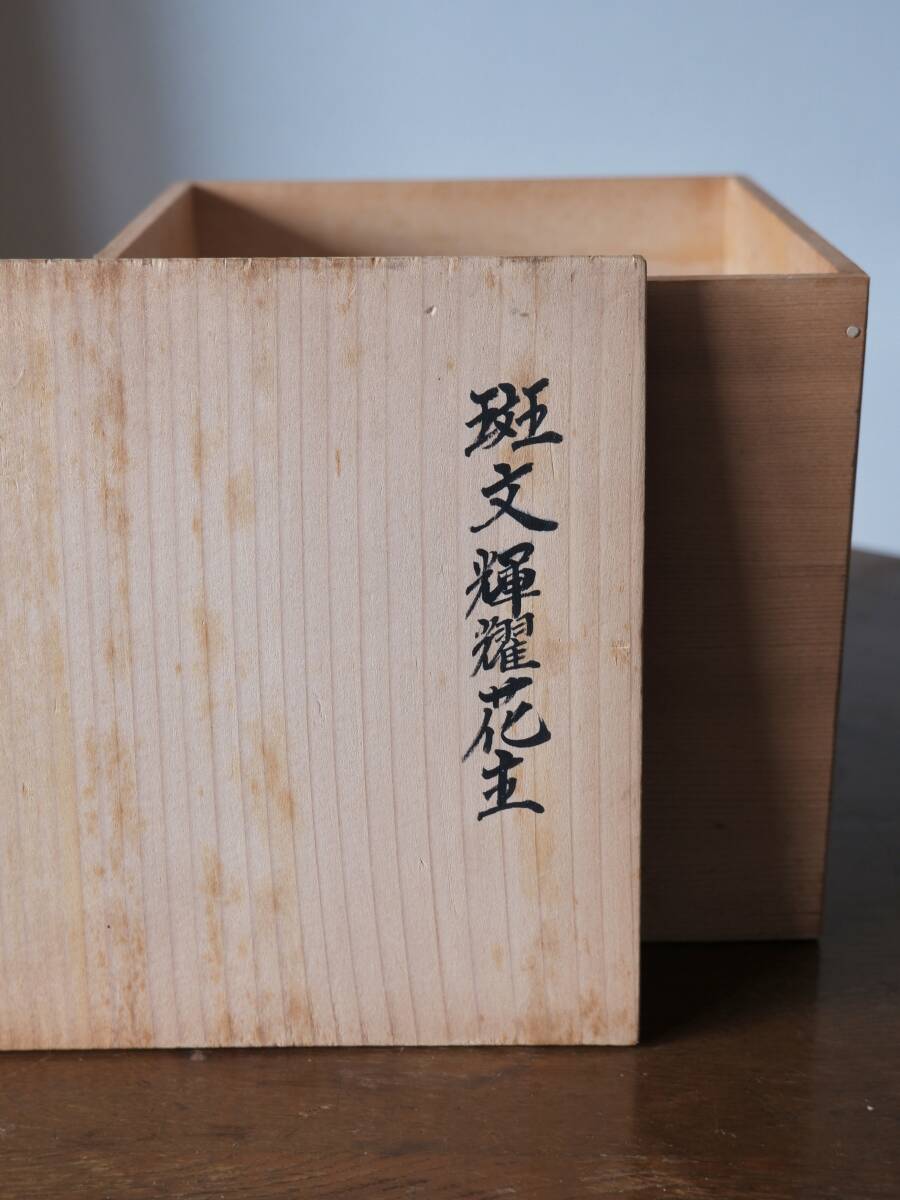 斑文輝耀花生